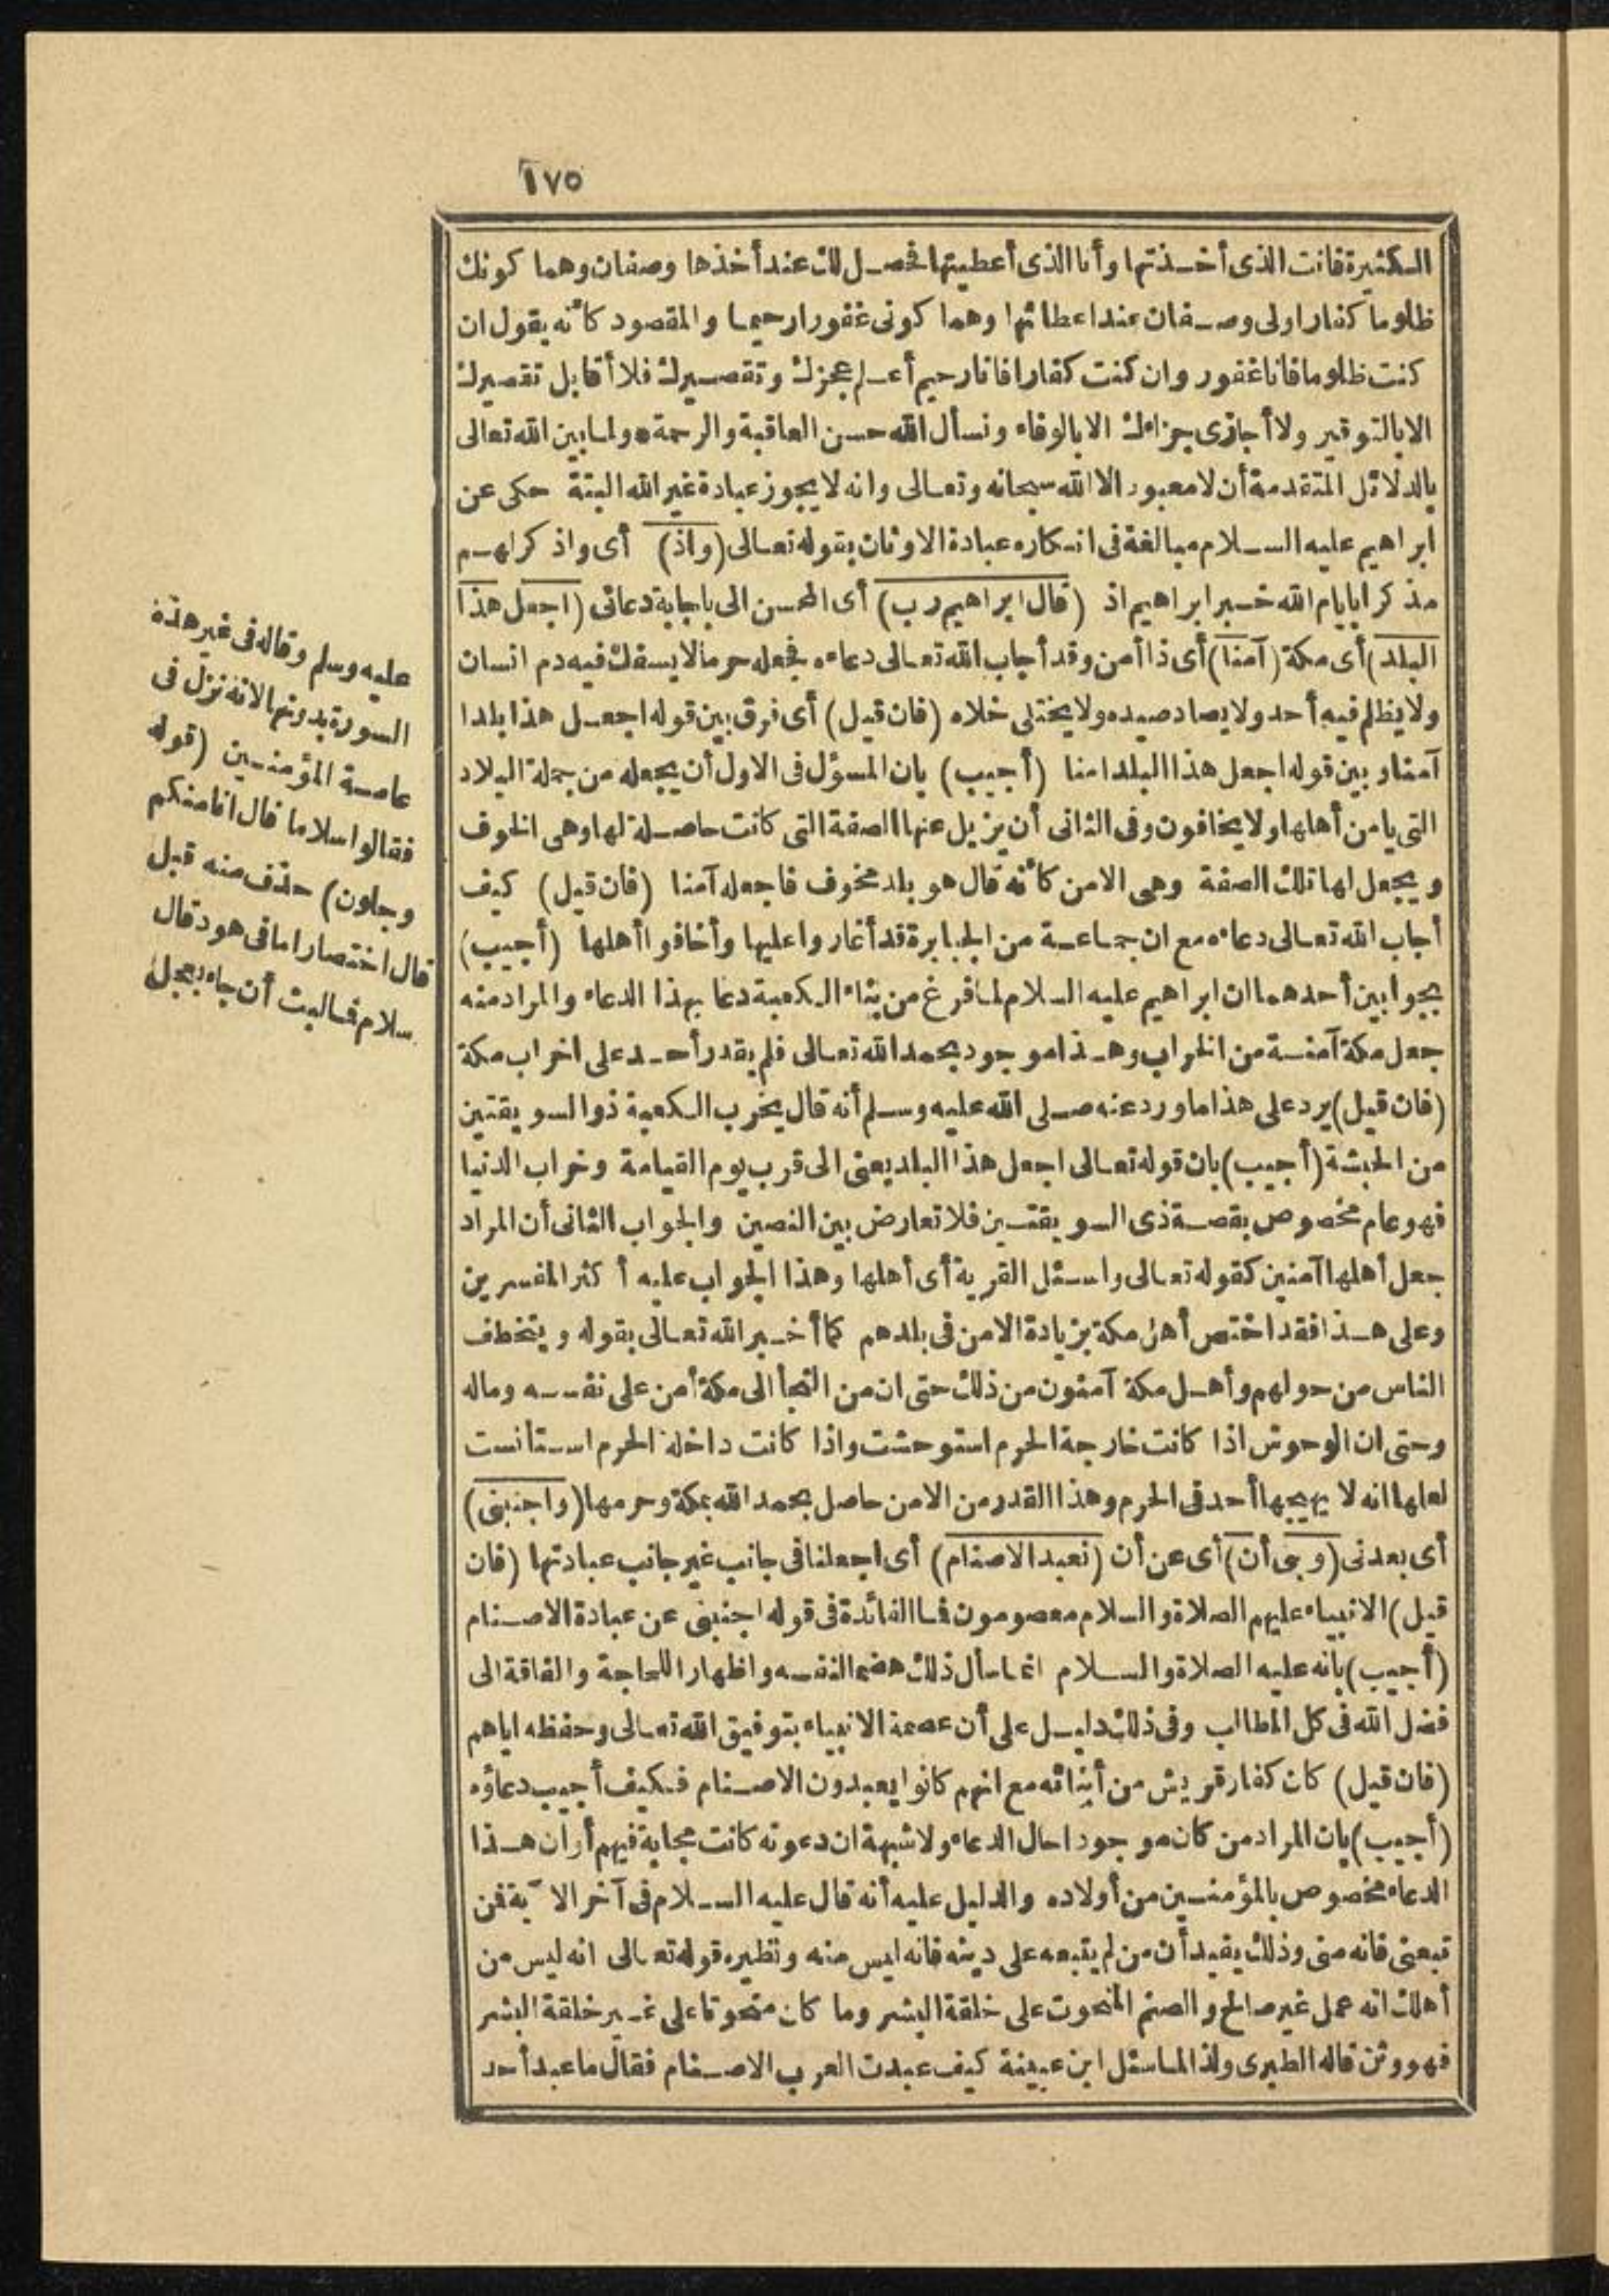 ١٧٥
الكثيرة فانت الذى أخذتها وأنا الذى أعطيتها فحصل لك عند أخذها وصفان وهما كونك
ظلوما كفارا ولى وصفان عند اعطائها وهما كونى غفورا رحيما والمقصود كأنه يقول ان
كنت ظلوما فانا غفور وان كنت كفارا فانا رحيم أعلم عجزك وتقصيرك فلا أقابل تقصيرك
الا بالتوقير ولا أجازى جزاءك الا بالوفاء ونسأل الله حسن العاقبة والرحمة * ولما بين الله تعالى
بالدلائل المتقدمة أن لا معبود الا الله سبحانه وتعالى وانه لا يجوز عبادة غير الله البتة حكى عن
ابراهيم عليه السلام مبالغة فى انكاره عبادة الاوثان بقوله تعالى (واذ) أى واذكر لهم
مذكرا بايام الله خبر ابراهيم اذ (قال ابراهيم رب) أى المحسن الى باجابة دعائى (اجعل هذا
البلد) أى مكة (آمنا) أى ذا أمن وقد أجاب الله تعالى دعاءه فجعله حرما لا يسفك فيه دم انسان
ولا يظلم فيه أحد ولا يصاد صيده ولا يختلى خلاه (فان قيل) أى فرق بين قوله اجعل هذا بلدا
آمنا وبين قوله اجعل هذا البلد امنا (أجيب) بان المسؤل فى الاول أن يجعله من جملة البلاد
التى يامن أهلها ولا يخافون وفى الثانى أن يزيل عنها الصفة التى كانت حاصلة لها وهى الخوف
ويجعل لها تلك الصفة وهى الامن كأنه قال هو بلد مخوف فاجعله آمنا (فان قيل) كيف
أجاب الله تعالى دعاءه مع ان جماعة من الجبابرة قد أغاروا عليها وأخافوا أهلها (أجيب)
بجوابين أحدهما ان ابراهيم عليه السلام لما فرغ من بناء الكعبة دعا بهذا الدعاء والمراد منه
جعل مكة آمنة من الخراب وهذا موجود بحمد الله تعالى فلم يقدر أحد على اخراب مكة
(فان قيل) يرد على هذا ما ورد عنه صلى الله عليه وسلم أنه قال يخرب الكعبة ذو السويقتين
من الحبشة (أجيب) بان قوله تعالى اجعل هذا البلد يعنى الى قرب يوم القيامة وخراب الدنيا
فهو عام مخصوص بقصة ذى السويقتين فلا تعارض بين النصين والجواب الثانى أن المراد
جعل أهلها آمنين كقوله تعالى واسئل القرية أى أهلها وهذا الجواب عليه أكثر المفسرين
وعلى هذا فقد اختص أهل مكة بزيادة الامن فى بلدهم كما أخبر الله تعالى بقوله ويتخطف
الناس من حولهم وأهل مكة آمنون من ذلك حتى ان من التجأ الى مكة أمن على نفسه وماله
وحتى ان الوحوش اذا كانت خارجة الحرم استوحشت واذا كانت داخلة الحرم استأنست
لعلها انه لا يهيجها أحد فى الحرم وهذا القدر من الامن حاصل بحمد الله بمكة وحرمها (واجنبنى)
أى بعدنى (وبنى أن) أى عن أن (نعبد الاصنام) أى اجعلنا فى جانب غير جانب عبادتها (فان
قيل) الانبياء عليهم الصلاة والسلام معصومون فما الفائدة فى قوله اجنبنى عن عبادة الاصنام
(أجيب) بانه عليه الصلاة والسلام انما سأل ذلك هضما لنفسه واظهارا للحاجة والفاقة الى
فضل الله فى كل المطالب وفى ذلك دليل على أن عصمة الانبياء بتوفيق الله تعالى وحفظه اياهم
(فان قيل) كان كفار قريش من أبنائه مع انهم كانوا يعبدون الاصنام فكيف أجيب دعاؤه
(أجيب) بان المراد من كان موجودا حال الدعاء ولا شبهة ان دعوته كانت مجابة فيهم أو ان هذا
الدعاء مخصوص بالمؤمنين من أولاده والدليل عليه أنه قال عليه السلام فى آخر الآية فمن
تبعنى فانه منى وذلك يفيد أن من لم يتبعه على دينه فانه ليس منه ونظيره قوله تعالى انه ليس من
أهلك انه عمل غير صالح والصنم المنحوت على خلقة البشر وما كان منحوتا على غير خلقة البشر
فهو وثن قاله الطبرى ولذا لما سئل ابن عيينة كيف عبدت العرب الاصنام فقال ما عبد أحد
عليه وسلم وقاله فى غير هذه
السورة بدونها لانه نزل فى
عامة المؤمنين (قوله
فقالوا سلاما قال انا منكم
وجلون) حذف منه قبل
قال اختصارا ما فى هود قال
سلام فما لبث أن جاء بعجل